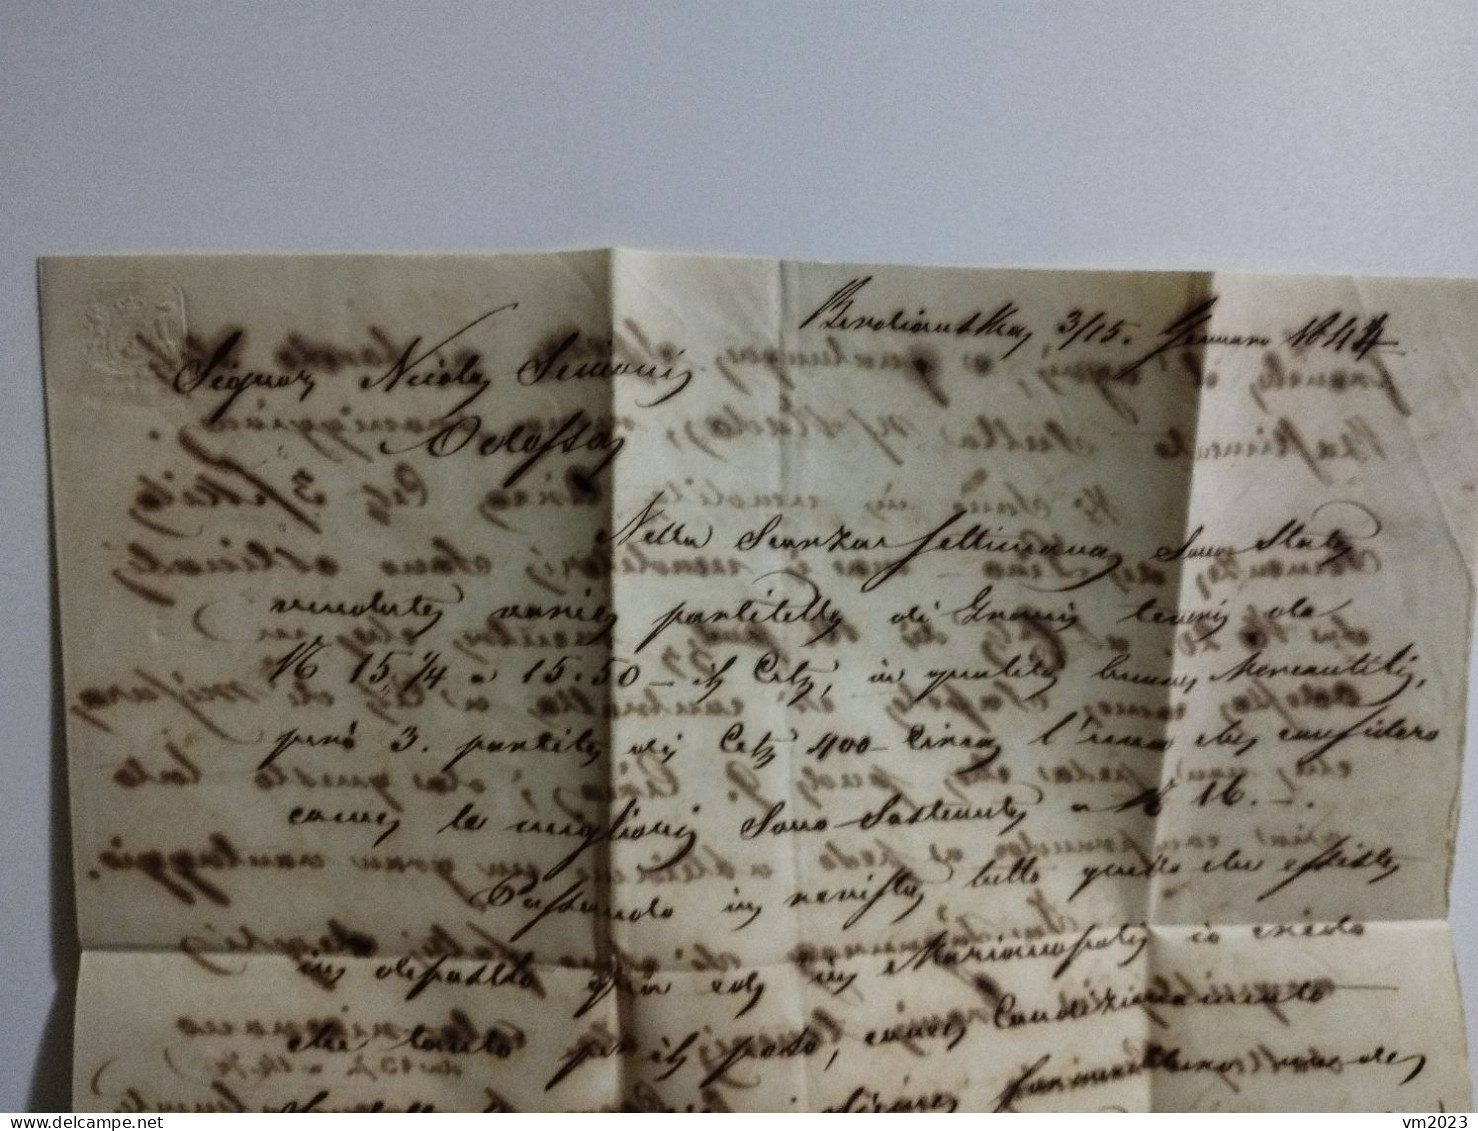 Berdianska 3/15. Gennaro 1844
Signor Nicola Simoni
Odessa
Nella scorsa settimana sono state
vendute varie partitelle di Grani teneri da
15 1/4 a 15.50 - il Cet, in qualità buona Mercantile,
però 3. partite di Cet 400 - Circa l'una che considero
come le migliori sono sostenute a 16. -.
Passando in rivista tutto quello che esiste
in deposito qui ed in Marianopoli io credo
che tanto per il peso, come Condizionamento
vm2023